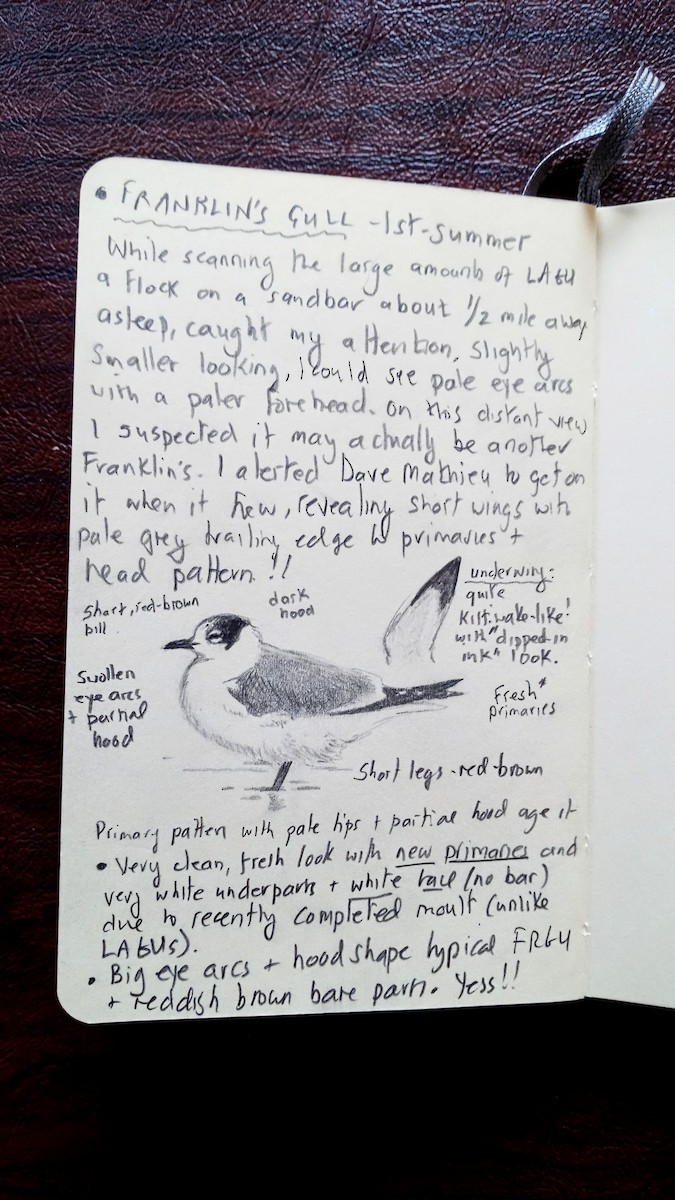 • FRANKLIN'S GULL - 1st-summer
While scanning the large amounts of LAGU
a flock on a sandbar about 1/2 mile away
asleep, caught my attention, slightly
smaller looking, I could see pale eye arcs
with a paler forehead. On this distant view
I suspected it may actually be another
Franklin's. I alerted Dave Mathieu to get on
it when it flew, revealing short wings with
pale grey trailing edge to primaries +
head pattern!!
short, red-brown
bill
dark
hood
underwing:
quite
Kittiwake-like!
with "dipped-in
ink" look.
Swollen
eye arcs
+ partial
hood
Fresh
primaries
Short legs - red-brown
Primary pattern with pale tips + partial hood age it
• Very clean, fresh look with new primaries and
very white underparts + white tail (no bar)
due to recently completed moult (unlike
LAGUs).
• Big eye arcs + hood shape typical FRGU
+ reddish brown bare parts. Yess!!